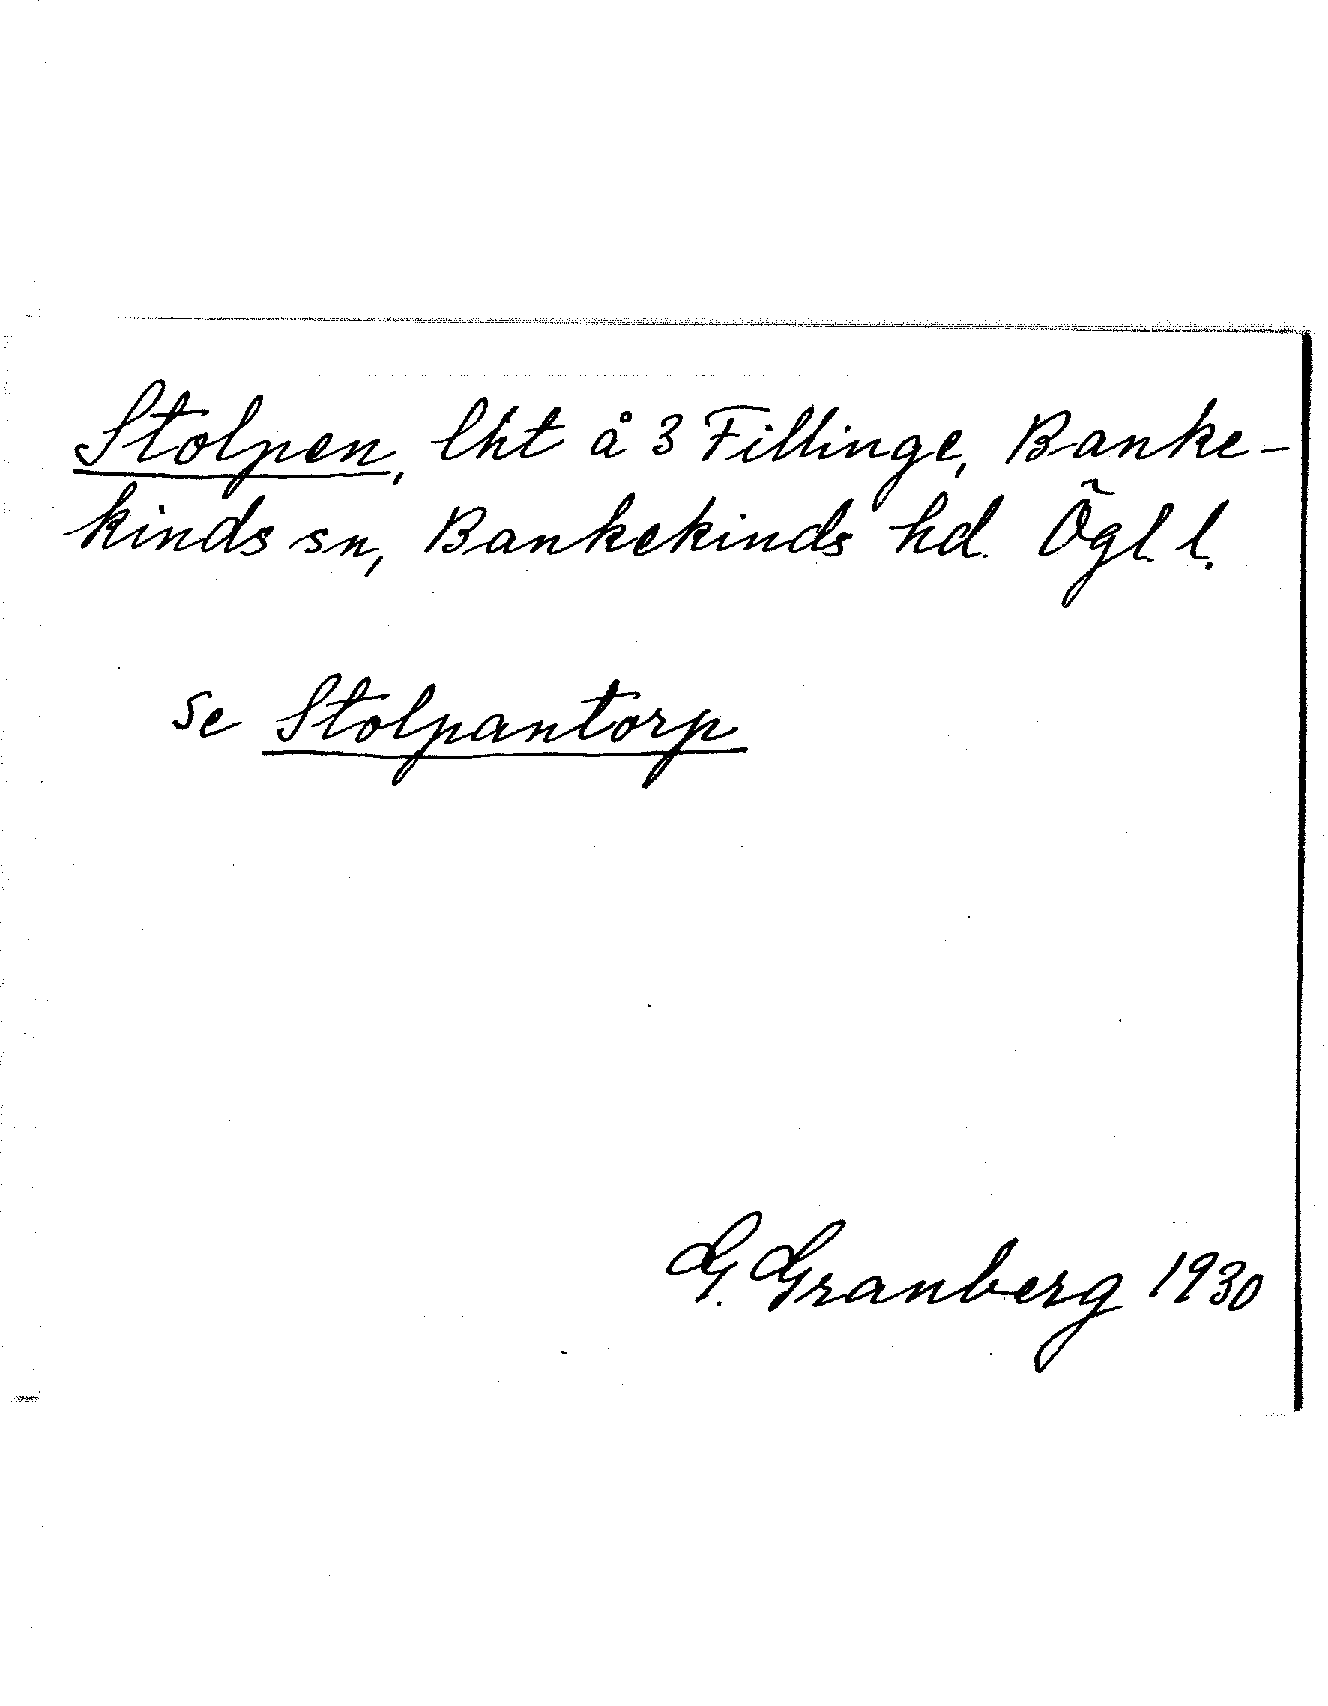 Stolpen, lht å 3 Fillinge, Banke-
kinds sn, Bankekinds hd. Ögl. l.
se Stolpantorp
G. Granberg 1930